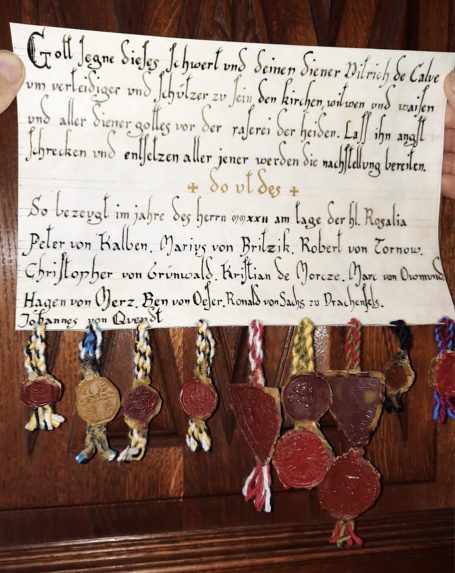 Gott segne dieses schwert vnd deinen diener Ditrich de Calve
vm verteidiger vnd schützer zv sein den kirchen, witwen vnd waisen
vnd aller diener gottes vor der raserei der heiden. Lass ihn angst
schrecken vnd entsetzen aller jener werden die nachstellung bereiten.
+ do vt des +
So bezevgt im jahre des herrn MMXXII am tage der hl. Rosalia
Peter von Kalben, Marivs von Britzik, Robert von Tornow,
Christopher von Grvnwald, Kristian de Morcze, Marc von
Hagen von Merz, Ben von Oeser, Ronald von Sachs zv Drachenfels,
Johannes von Qverdt